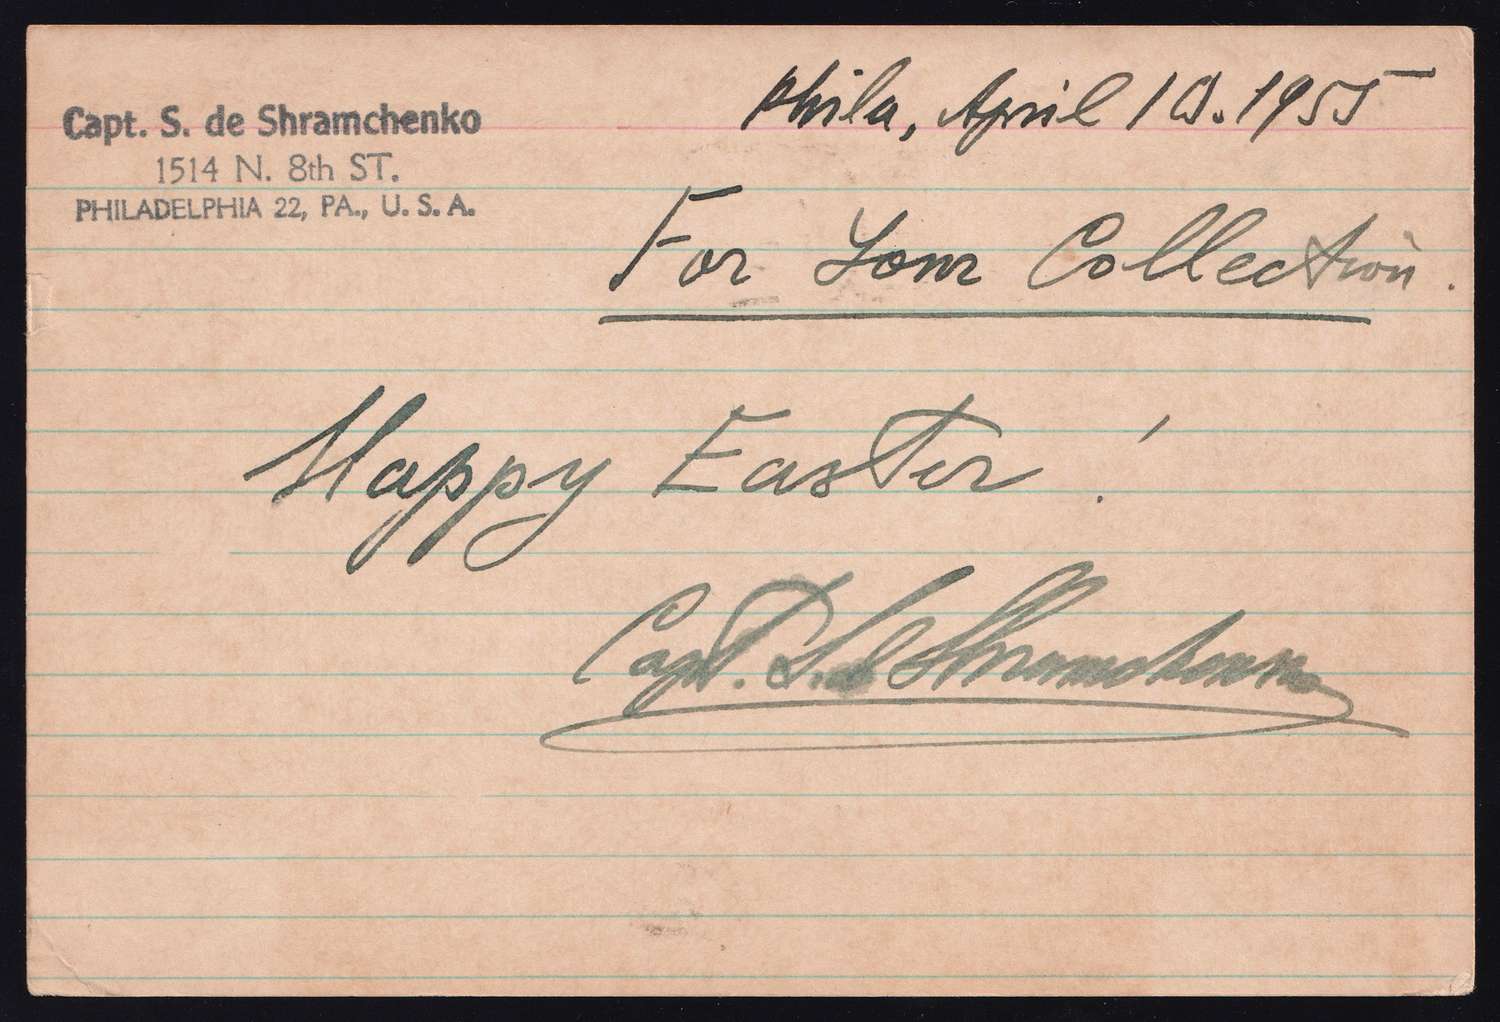 Capt. S. de Shramchenko
1514 N. 8th ST.
PHILADELPHIA 22, PA., U. S. A.
Phila, April 10. 1955
For Your Collection.
Happy Easter!
Capt. S. de Shramchenko